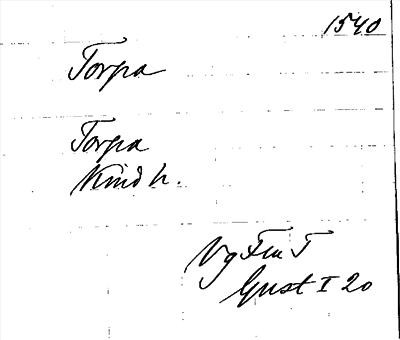 1540
Torpa
Torpa
Kind h.
Vg Fru T
Gust I 20